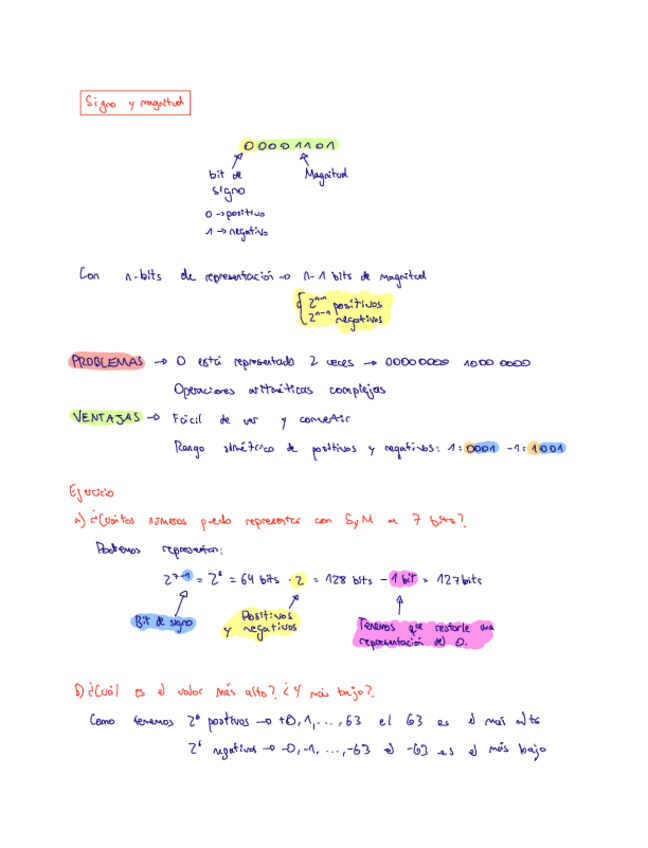 Signo y magnitud
00001101
bit de signo
Magnitud
0 → positivo
1 → negativo
Con n-bits de representación → n-1 bits de magnitud
{ 2ⁿ⁻¹ positivos
2ⁿ⁻¹ negativos
PROBLEMAS → 0 está representado 2 veces → 00000000 1000 0000
Operaciones aritméticas complejas
VENTAJAS → Fácil de ver y convertir
Rango simétrico de positivos y negativos: 1=0001 -1=1001
Ejercicio
a) ¿Cuántos números puedo representar con SyM en 7 bits?
Podemos representar:
2⁷⁻¹ = 2⁶ = 64 bits · 2 = 128 bits - 1 bit = 127 bits
Bit de signo
Positivos y negativos
Tenemos que restarle una representación del 0.
b) ¿Cuál es el valor más alto? ¿Y más bajo?
Como tenemos 2⁶ positivos → +0, 1, ..., 63 el 63 es el más alto
2⁶ negativos → -0, -1, ..., -63 el -63 es el más bajo